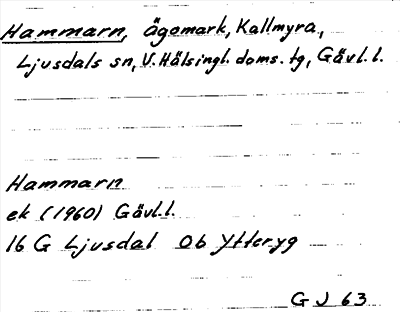 Hammarn, ägomark, Kallmyra,
Ljusdals sn, V. Hälsingl. doms. tg, Gävl. l.
Hammarn
ek (1960) Gävl.l.
16 G Ljusdal Ob Ytteryg
G J 63